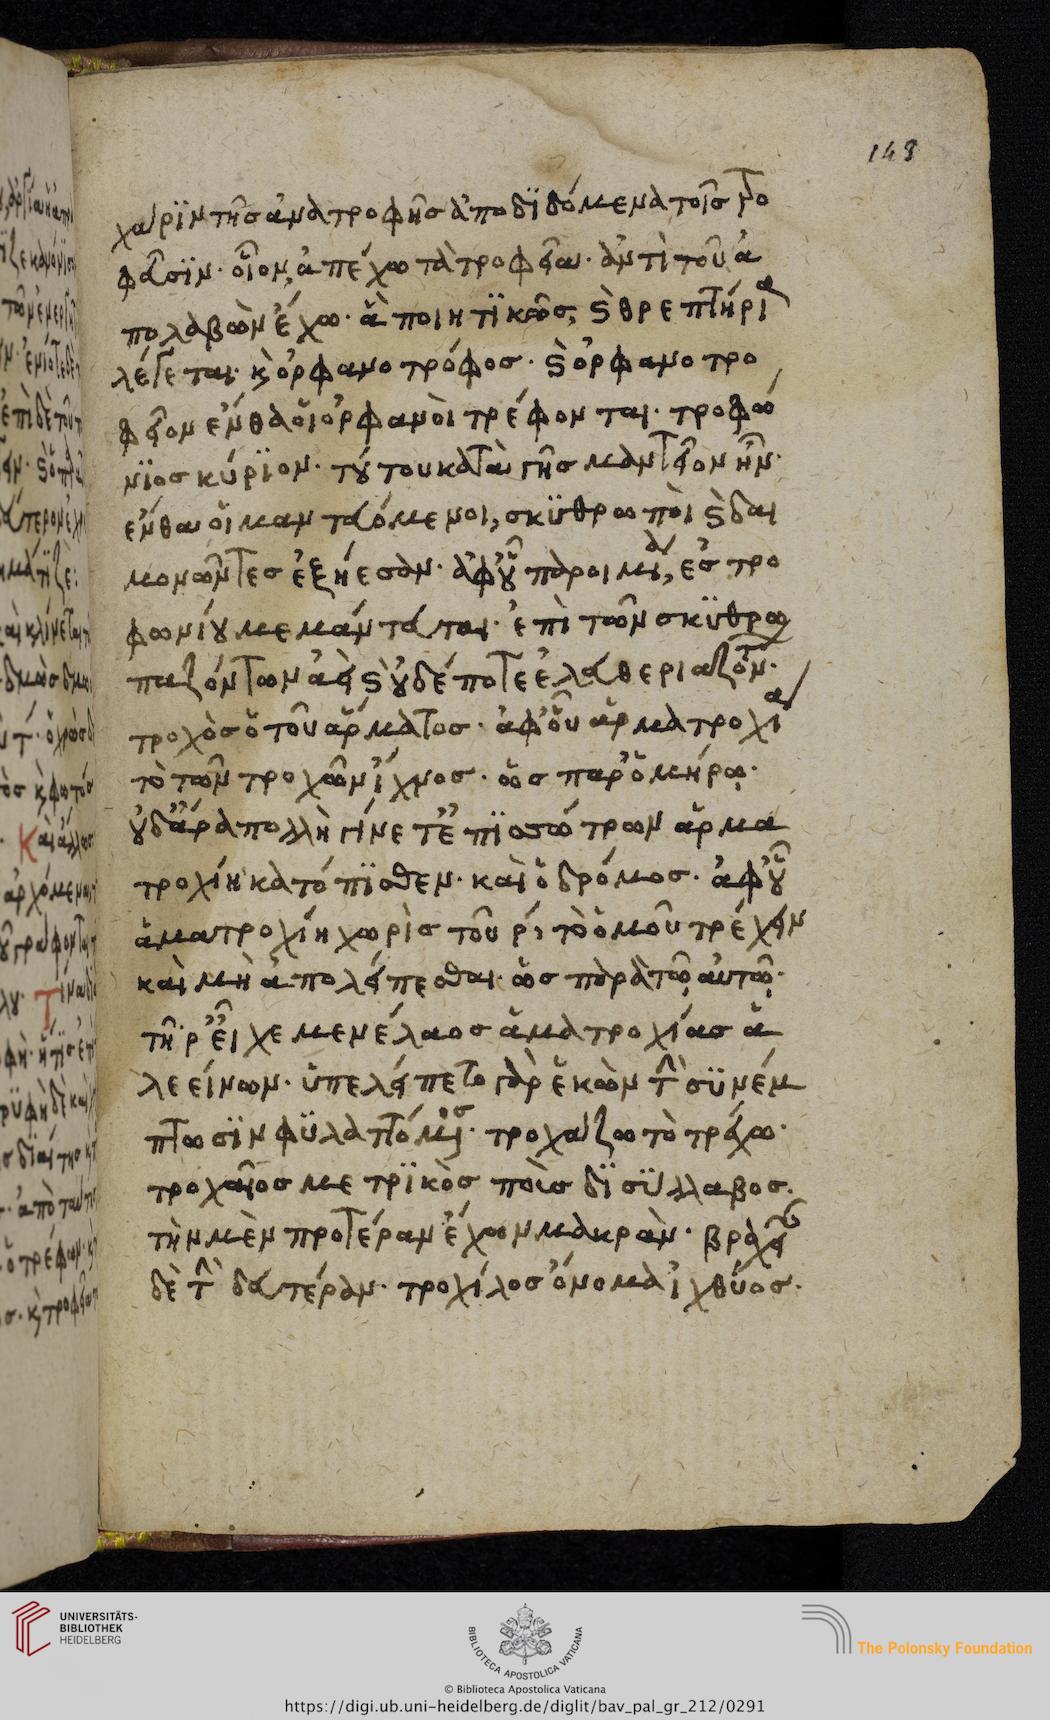 148
χάριν τῆς ἀνατροφῆς ἀποδϊδόμενα τοῖς τρο
φεῦσϊν· οἷον, ἀπέχω τὰ τροφεῖα· ἀντὶ τοῦ ἀ
πολαβὼν ἔχω· ἃ ποιητϊκῶς, ϛ θρεπτήρια
λέγεται· κ̀ ὀρφανοτρόφος· ϛ ὀρφανοτρο
φεῖον ἔνθα οἱ ὀρφανοὶ τρέφονται· τροφώ
νϊος κύρϊον· τούτου κατὰ γῆς μαντεῖον ἦν·
ἔνθα οἱ μαντευόμενοι, σκϋθρωποὶ ϛ δαι
μονῶντες ἐξήεσαν· ἀφ' οὗ παροιμία, ἐς τρο
φωνίου μεμάντευται· ἐπὶ τῶν σκϋθρω
παζόντων ἀεὶ ϛ οὐδέποτε ἐλευθεριαζόντων·
τροχὸς ὁ τοῦ ἅρματος· ἀφ' οὗ ἁρματροχιὰ
τὸ τῶν τροχῶν ἴχνος· ὡς παρ' ὁμήρῳ·
οὐδ' ἄρα πολλὴ γίνετ' ἐπϊσσώτρων ἁρμα
τροχίη κατόπϊσθεν· καὶ ὁ δρόμος· ἀφ' οὗ
ἁματροχίη χωρὶς τοῦ ρ, τὸ ὁμοῦ τρέχειν
καὶ μὴ ἀπολείπεσθαι· ὡς παρὰ τῷ αὐτῷ·
τῇ ῥ' εἶχε μενέλαος ἁματροχίας ἀ
λεείνων· ὑπελείπετο γὰρ ἑκὼν τὴν σϋνέμ
πτωσϊν φϋλαττόμενος· τροχάζω τὸ τρέχω·
τροχαῖος μετρϊκὸς ποὺς δϊσϋλλαβος.
τὴν μὲν προτέραν ἔχων μακρὰν· βραχεῖαν
δὲ τὴν δευτέραν· τροχίλος ὄνομα ἰχθύος.
UNIVERSITÄTS-
BIBLIOTHEK
HEIDELBERG
BIBLIOTECA APOSTOLICA VATICANA
The Polonsky Foundation
© Biblioteca Apostolica Vaticana
https://digi.ub.uni-heidelberg.de/diglit/bav_pal_gr_212/0291